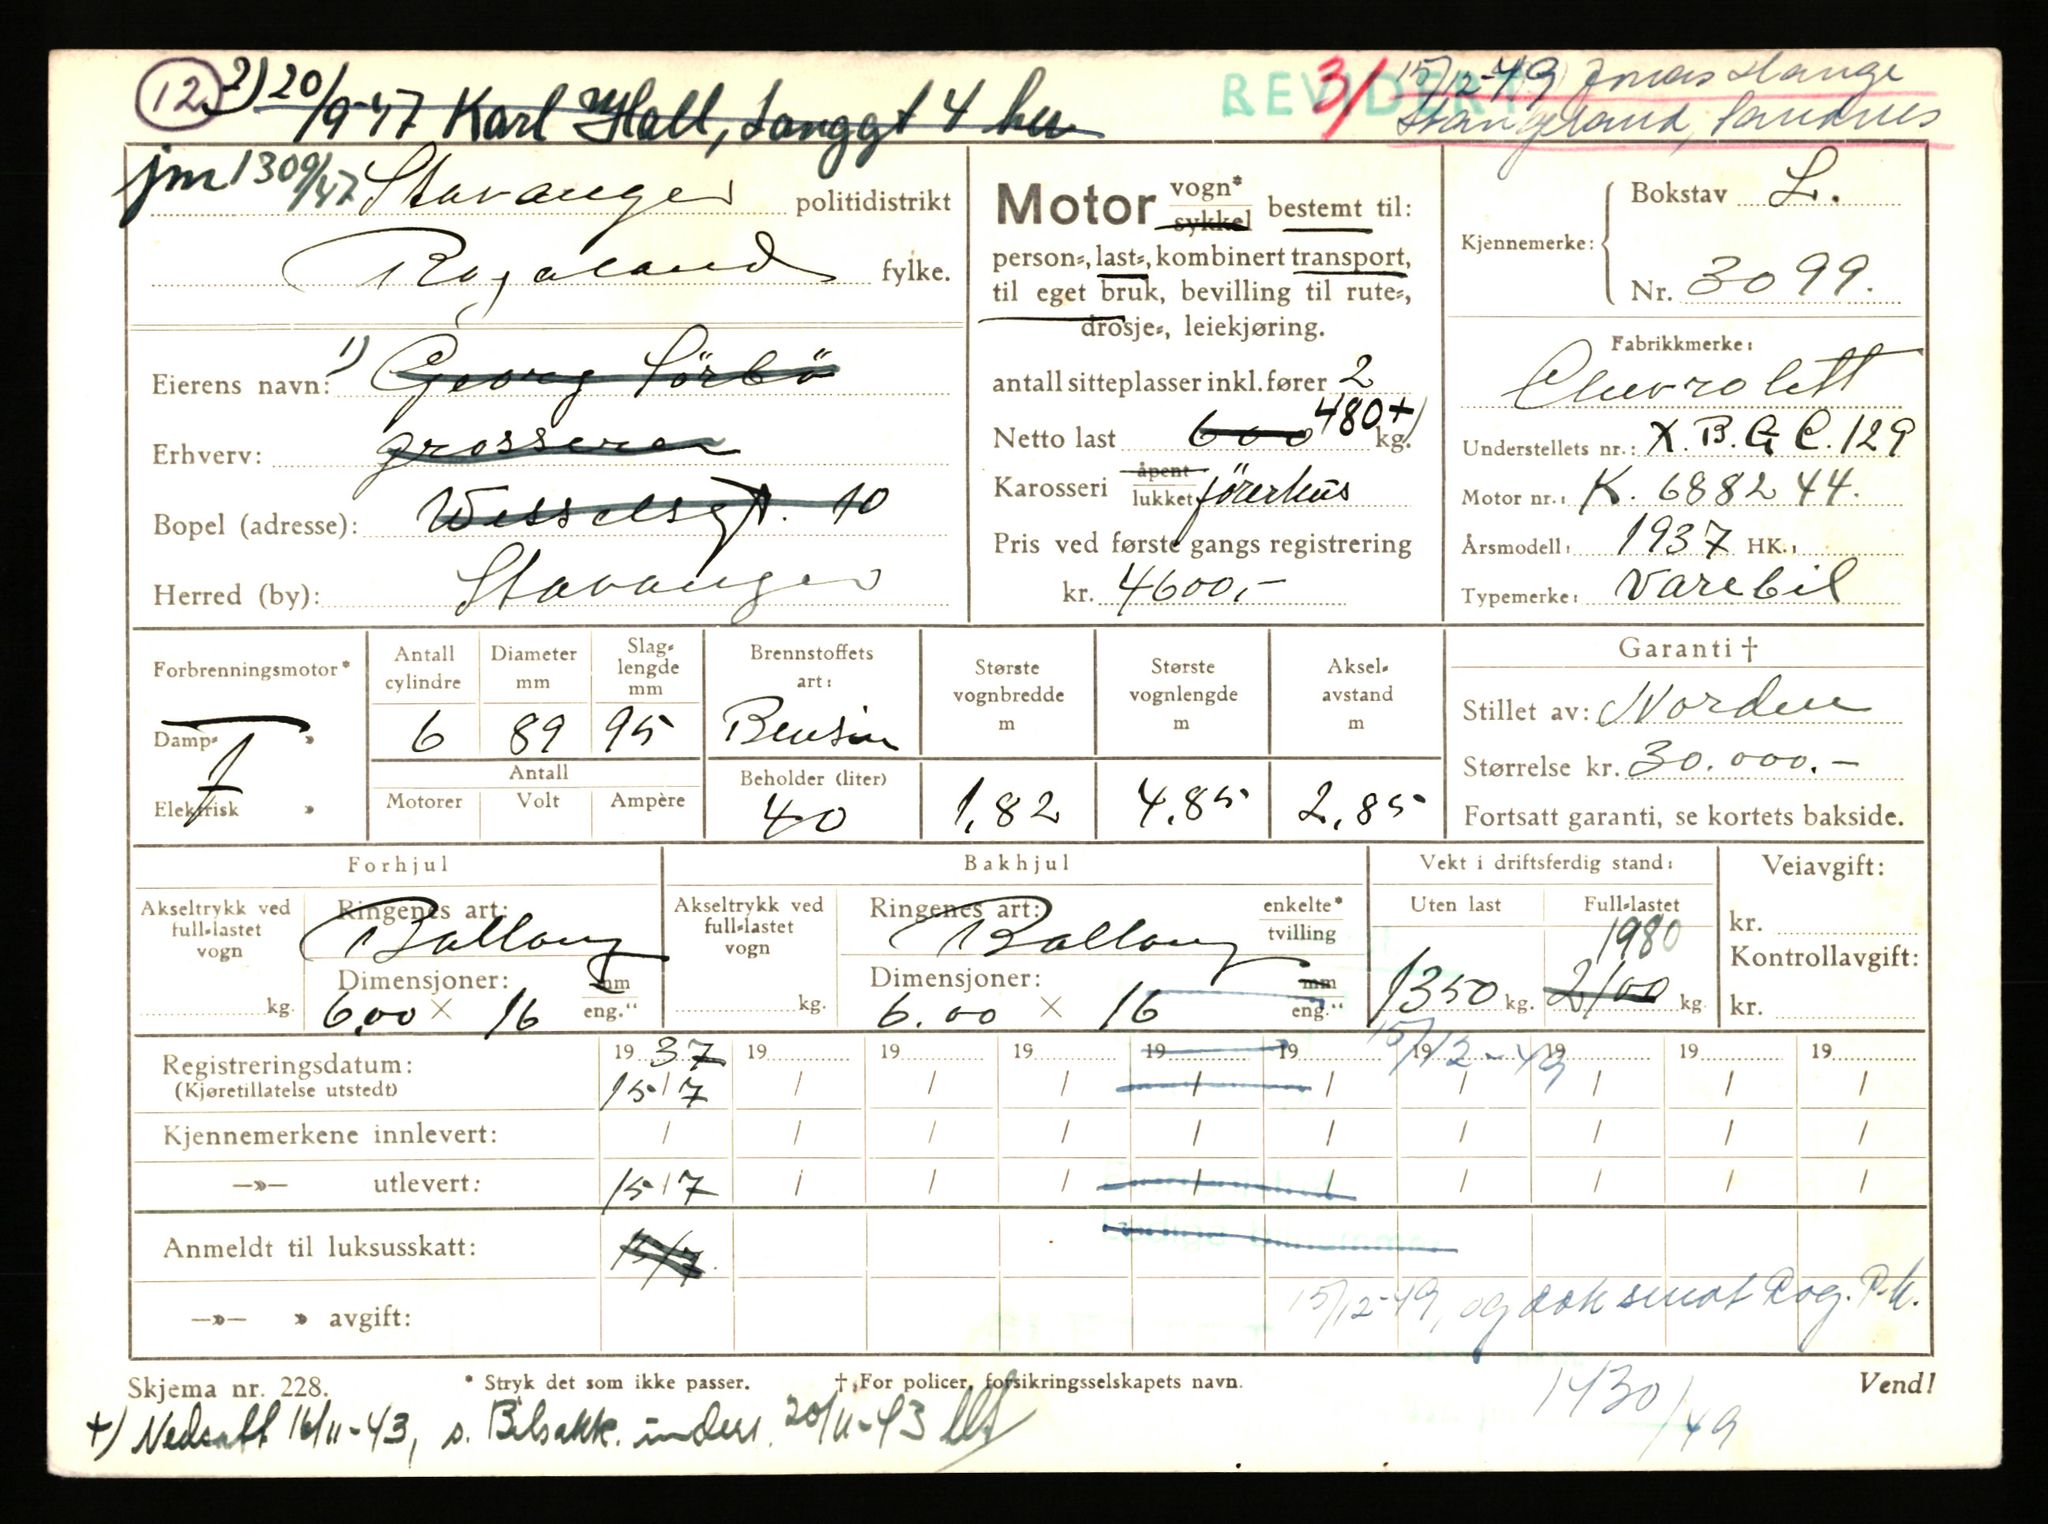 12 2) 20/9-47 Karl Hall, Langgt 4 her
REVIDERT 3/ 15/12-49 Jonas Stange
Stangeland, Sandnes
jm 1309/47 Stavanger politidistrikt
Rogaland fylke.
1)
Eierens navn: Georg Sörbö
Erhverv: grosserer
Bopel (adresse): Wesselsgt. 10
Herred (by): Stavanger
Motor vogn* sykkel bestemt til:
person-, last-, kombinert transport,
til eget bruk, bevilling til rute-,
drosje-, leiekjøring.
antall sitteplasser inkl. fører 2
Netto last 600 480 +) kg.
Karosseri åpent lukket förerhus
Pris ved første gangs registrering
kr. 4600,-
Kjennemerke: Bokstav L.
Nr. 3099.
Fabrikkmerke:
Chevrolett
Understellets nr.: X.B.G.C.129
Motor nr.: K. 688244.
Årsmodell: 1937 HK.:
Typemerke: Varebil
Forbrenningsmotor*
Damp- »
Elektrisk »
Antall cylindre 6
Diameter mm 89
Slag-lengde mm 95
Antall
Motorer Volt Ampère
Brennstoffets art: Bensin
Beholder (liter) 40
Største vognbredde m 1,82
Største vognlengde m 4,85
Aksel-avstand m 2,85
Garanti †
Stillet av: Norden
Størrelse kr. 30.000.-
Fortsatt garanti, se kortets bakside.
Forhjul
Akseltrykk ved full-lastet vogn
kg.
Ringenes art: Ballong
Dimensjoner: mm
6.00 × 16 eng."
Bakhjul
Akseltrykk ved full-lastet vogn
kg.
Ringenes art: Ballong enkelte* tvilling
Dimensjoner: mm
6.00 × 16 eng."
Vekt i driftsferdig stand:
Uten last Full-lastet
1350 kg. 1980 2100 kg.
Veiavgift:
kr.
Kontrollavgift:
kr.
Registreringsdatum: 1937 19 19 19 19 19 19 19 19 19
15/12-49
(Kjøretillatelse utstedt) 15/7 / / / / / / / / /
Kjennemerkene innlevert: / / / / / / / / / /
—»— utlevert: 15/7 / / / / / / / / /
Anmeldt til luksusskatt: 15/7
—»— » avgift: 15/12-49, og dok sendt Rog. P.k.
Skjema nr. 228. * Stryk det som ikke passer. † For policer, forsikringsselskapets navn. Vend!
1430/49
+) Nedsatt 16/11-43, s. Bilsakk. inders. 20/11-43